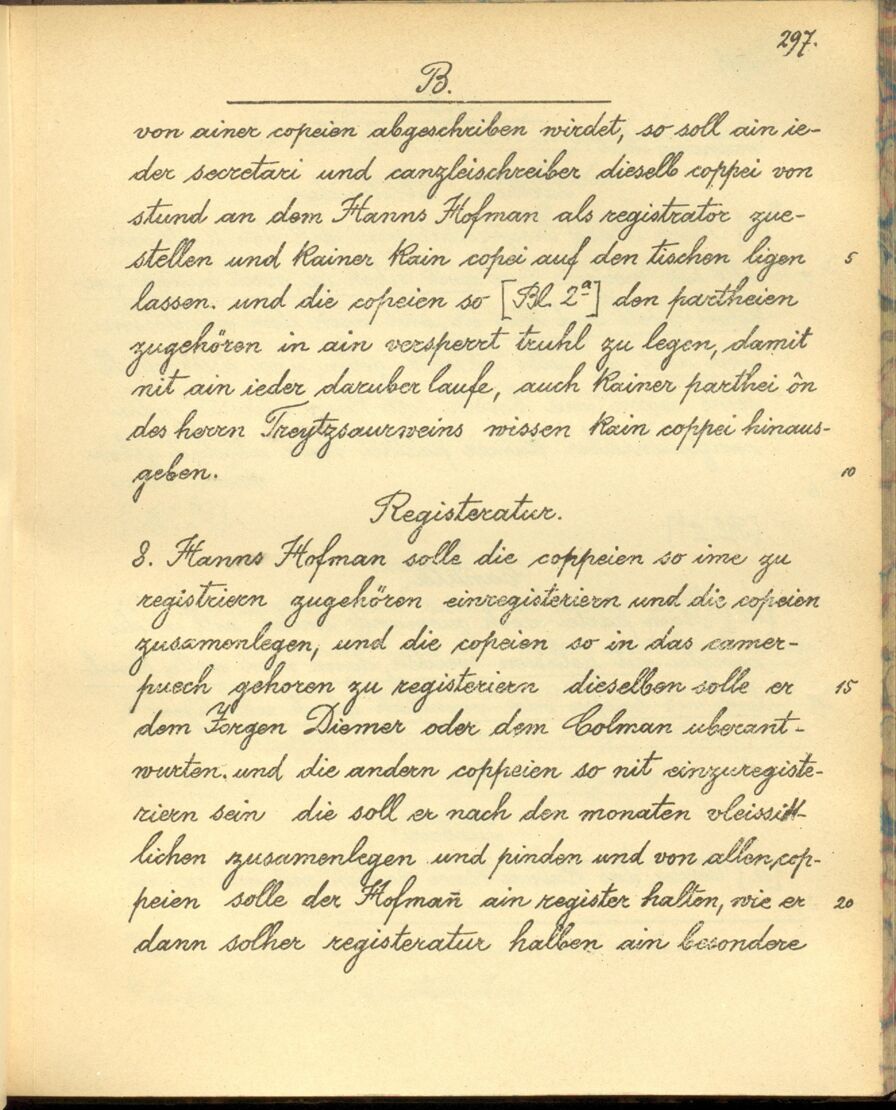 297.
B.
von ainer copeien abgeschriben wirdet, so soll ain ie-
der secretari und canzleischreiber dieselb coppei von
stund an dem Hanns Hofman als registrator zue-
stellen und kainer kain copei auf den tischen ligen 5
lassen. und die copeien so [Bl. 2a] den partheien
zugehören in ain versperrt truhl zu legen, damit
nit ain ieder daruber laufe, auch kainer parthei ôn
des herrn Treytzsaurweins wissen kain coppei hinaus-
geben. 10
Registeratur.
8. Hanns Hofman solle die coppeien so ime zu
registriern zugehören einregisteriern und die copeien
zusamenlegen, und die copeien so in das camer-
puech gehoren zu registeriern dieselben solle er 15
dem Jorgen Diemer oder dem Colman uberant-
wurten. und die andern coppeien so nit einzuregiste-
riern sein die soll er nach den monaten
lichen zusamenlegen und pinden und von allen cop-
peien solle der Hofmañ ain register halten, wie er 20
dann solher registeratur halben ain besondere